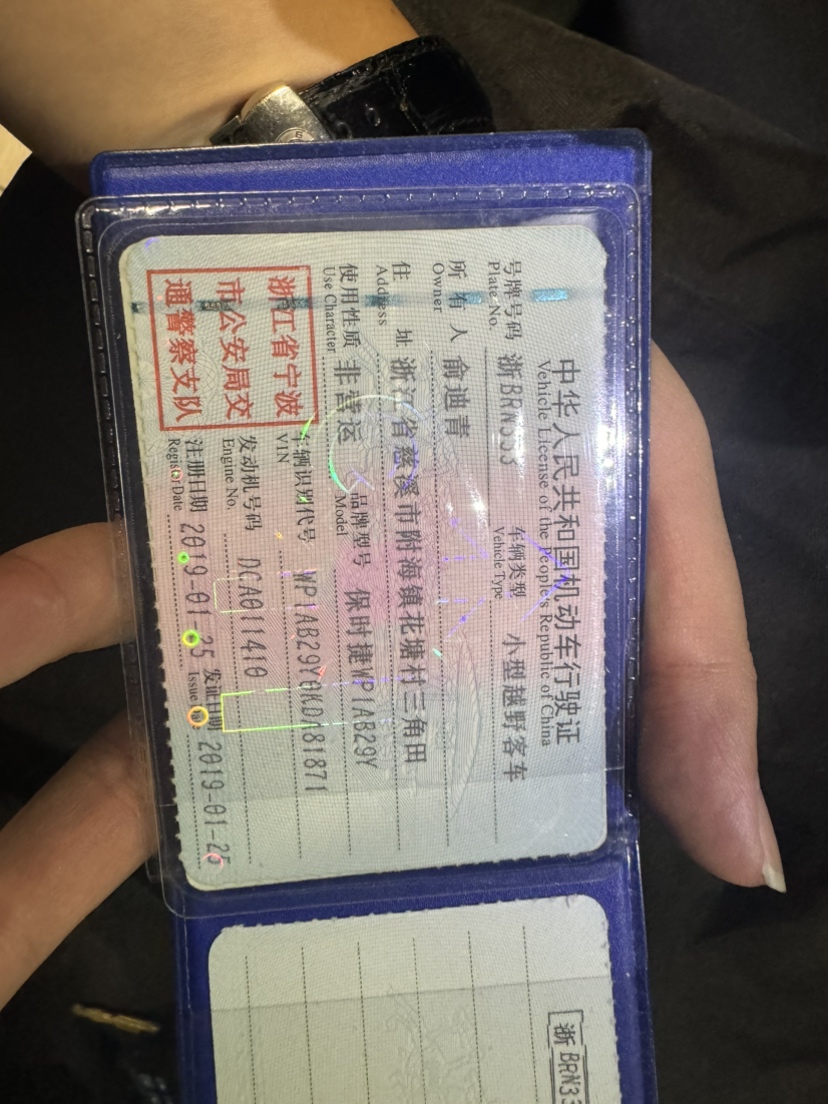 中华人民共和国机动车行驶证
Vehicle License of the People's Republic of China
号牌号码 浙BRN333 车辆类型 小型越野客车
Plate No. Vehicle Type
所有人 俞迪青
Owner
住址 浙江省慈溪市附海镇花塘村三角田
Address
使用性质 非营运 品牌型号 保时捷WP1AB29Y
Use Character Model
浙江省宁波
市公安局交
通警察支队
车辆识别代号 WP1AB29Y0KDA81871
VIN
发动机号码 DCA011410
Engine No.
注册日期 2019-01-25 发证日期 2019-01-25
Register Date Issue Date
浙BRN33